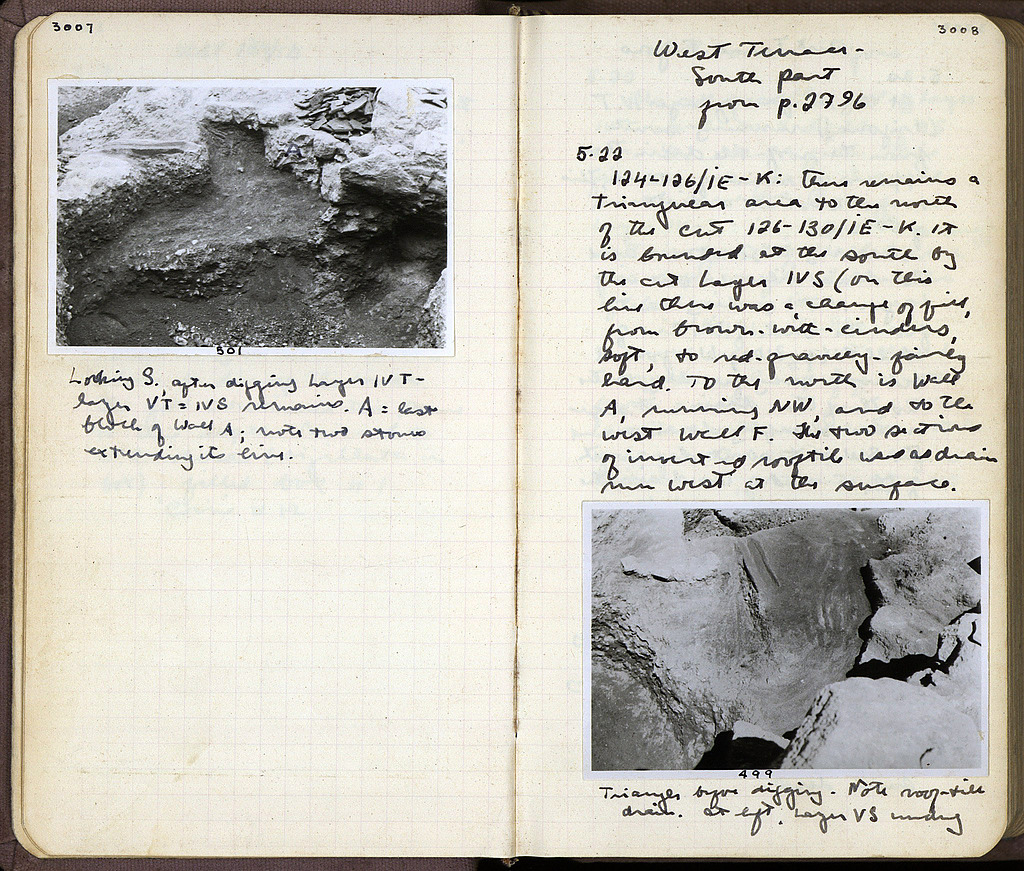 3007
501
Looking S., after digging Layer IVT -
layer VT = IVS remains. A = last
block of Wall A; note two stones
extending its line.
3008
West Terrace -
South part
from p. 2796
5-22
124-126/ΙΕ-Κ: There remains a
triangular area to the north
of the cut 126-130/ΙΕ-Κ. It
is bounded at the south by
the cut Layer IVS (on this
line there was a change of fill,
from brown-with-cinders,
soft, to red-gravelly-fairly
hard. To the north is Wall
A, running NW, and to the
west Wall F. The two sections
of inverted rooftile used as drain
run west at the surface.
499
Triangle before digging. Note roof-tile
drain. At left, Layer VS